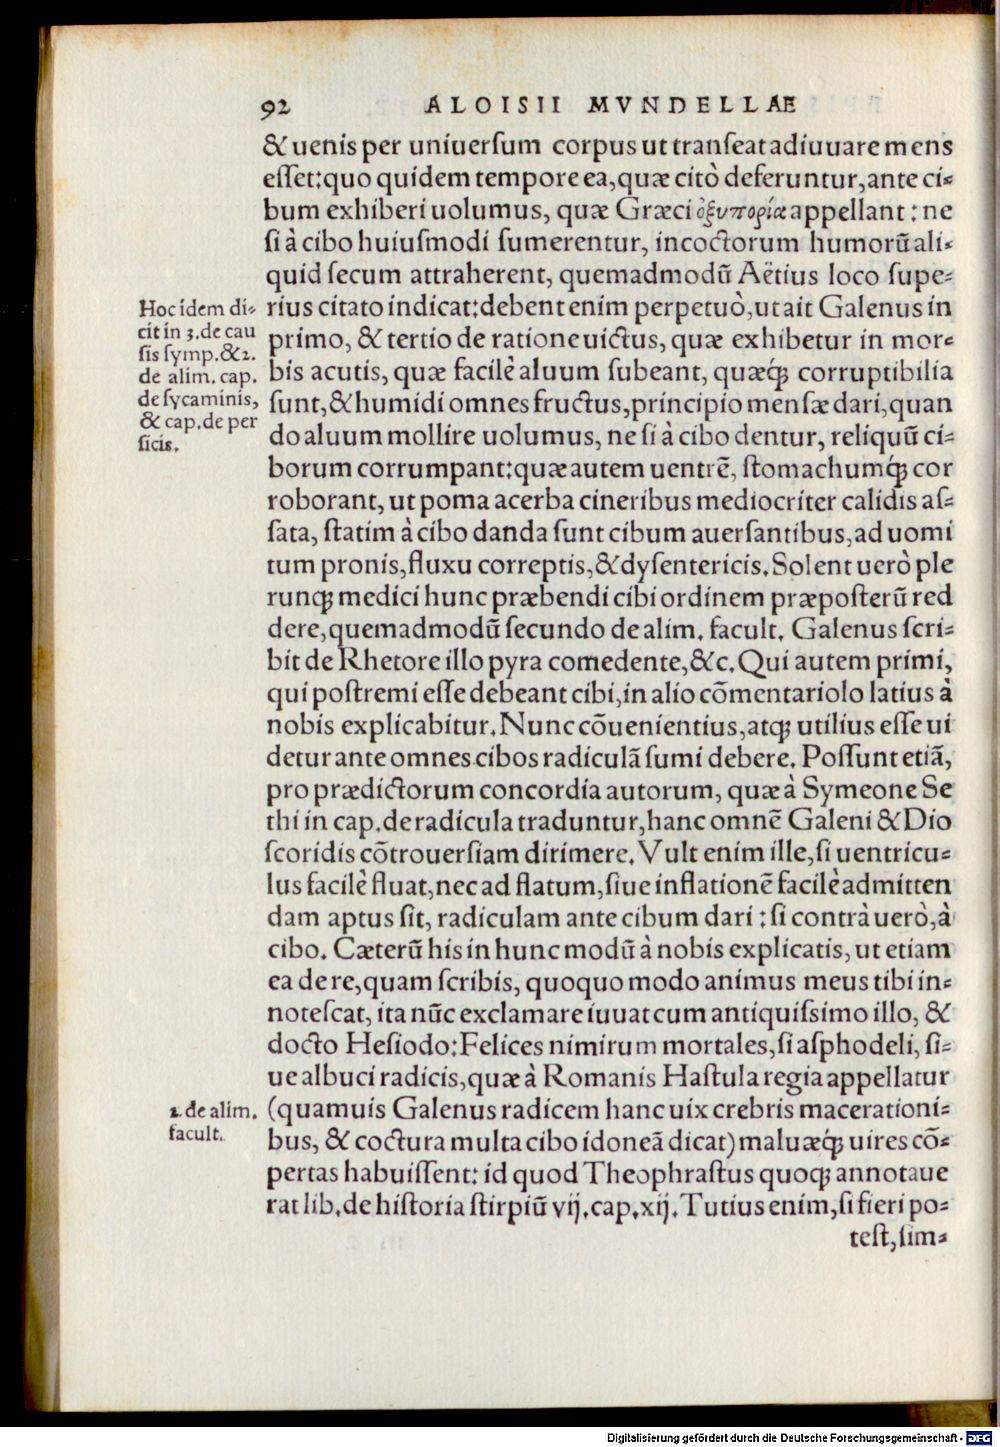 92 ALOISII MVNDELLAE
& uenis per uniuersum corpus ut transeat adiuuare mens
esset: quo quidem tempore ea, quæ citò deferuntur, ante ci-
bum exhiberi uolumus, quæ Græci ὀξυπορίας appellant: ne
si à cibo huiusmodi sumerentur, incoctorum humorũ ali-
quid secum attraherent, quemadmodũ Aëtius loco supe-
rius citato indicat: debent enim perpetuò, ut ait Galenus in
primo, & tertio de ratione uictus, quæ exhibetur in mor-
bis acutis, quæ facilè aluum subeant, quæq́; corruptibilia
sunt, & humidi omnes fructus, principio mensæ dari, quan
do aluum mollire uolumus, ne si à cibo dentur, reliquũ ci-
borum corrumpant: quæ autem uentrẽ, stomachumq́; cor
roborant, ut poma acerba cineribus mediocriter calidis as-
sata, statim à cibo danda sunt cibum auersantibus, ad uomi
tum pronis, fluxu correptis, & dysentericis. Solent uerò ple
runq; medici hunc præbendi cibi ordinem præposterũ red
dere, quemadmodũ secundo de alim. facult. Galenus scri-
bit de Rhetore illo pyra comedente, &c. Qui autem primi,
qui postremi esse debeant cibi, in alio cõmentariolo latius à
nobis explicabitur. Nunc cõuenientius, atq; utilius esse ui
detur ante omnes cibos radiculã sumi debere. Possunt etiã,
pro prædictorum concordia autorum, quæ à Symeone Se
thi in cap. de radicula traduntur, hanc omnẽ Galeni & Dio
scoridis cõtrouersiam dirimere. Vult enim ille, si uentricu-
lus facilè fluat, nec ad flatum, siue inflationẽ facilè admitten
dam aptus sit, radiculam ante cibum dari: si contrà uerò, à
cibo. Cæterũ his in hunc modũ à nobis explicatis, ut etiam
ea de re, quam scribis, quoquo modo animus meus tibi in-
notescat, ita nũc exclamare iuuat cum antiquissimo illo, &
docto Hesiodo: Felices nimirum mortales, si asphodeli, si-
ue albuci radicis, quæ à Romanis Hastula regia appellatur
(quamuis Galenus radicem hanc uix crebris macerationi-
bus, & coctura multa cibo idoneã dicat) maluæq́; uires cõ-
pertas habuissent: id quod Theophrastus quoq; annotaue
rat lib. de historia stirpiũ vij. cap. xij. Tutius enim, si fieri po-
test, sim-
Hoc idem di-
cit in 3. de cau
sis symp. & 2.
de alim. cap.
de sycaminis,
& cap. de per
sicis.
2. de alim.
facult.
Digitalisierung gefördert durch die Deutsche Forschungsgemeinschaft - DFG